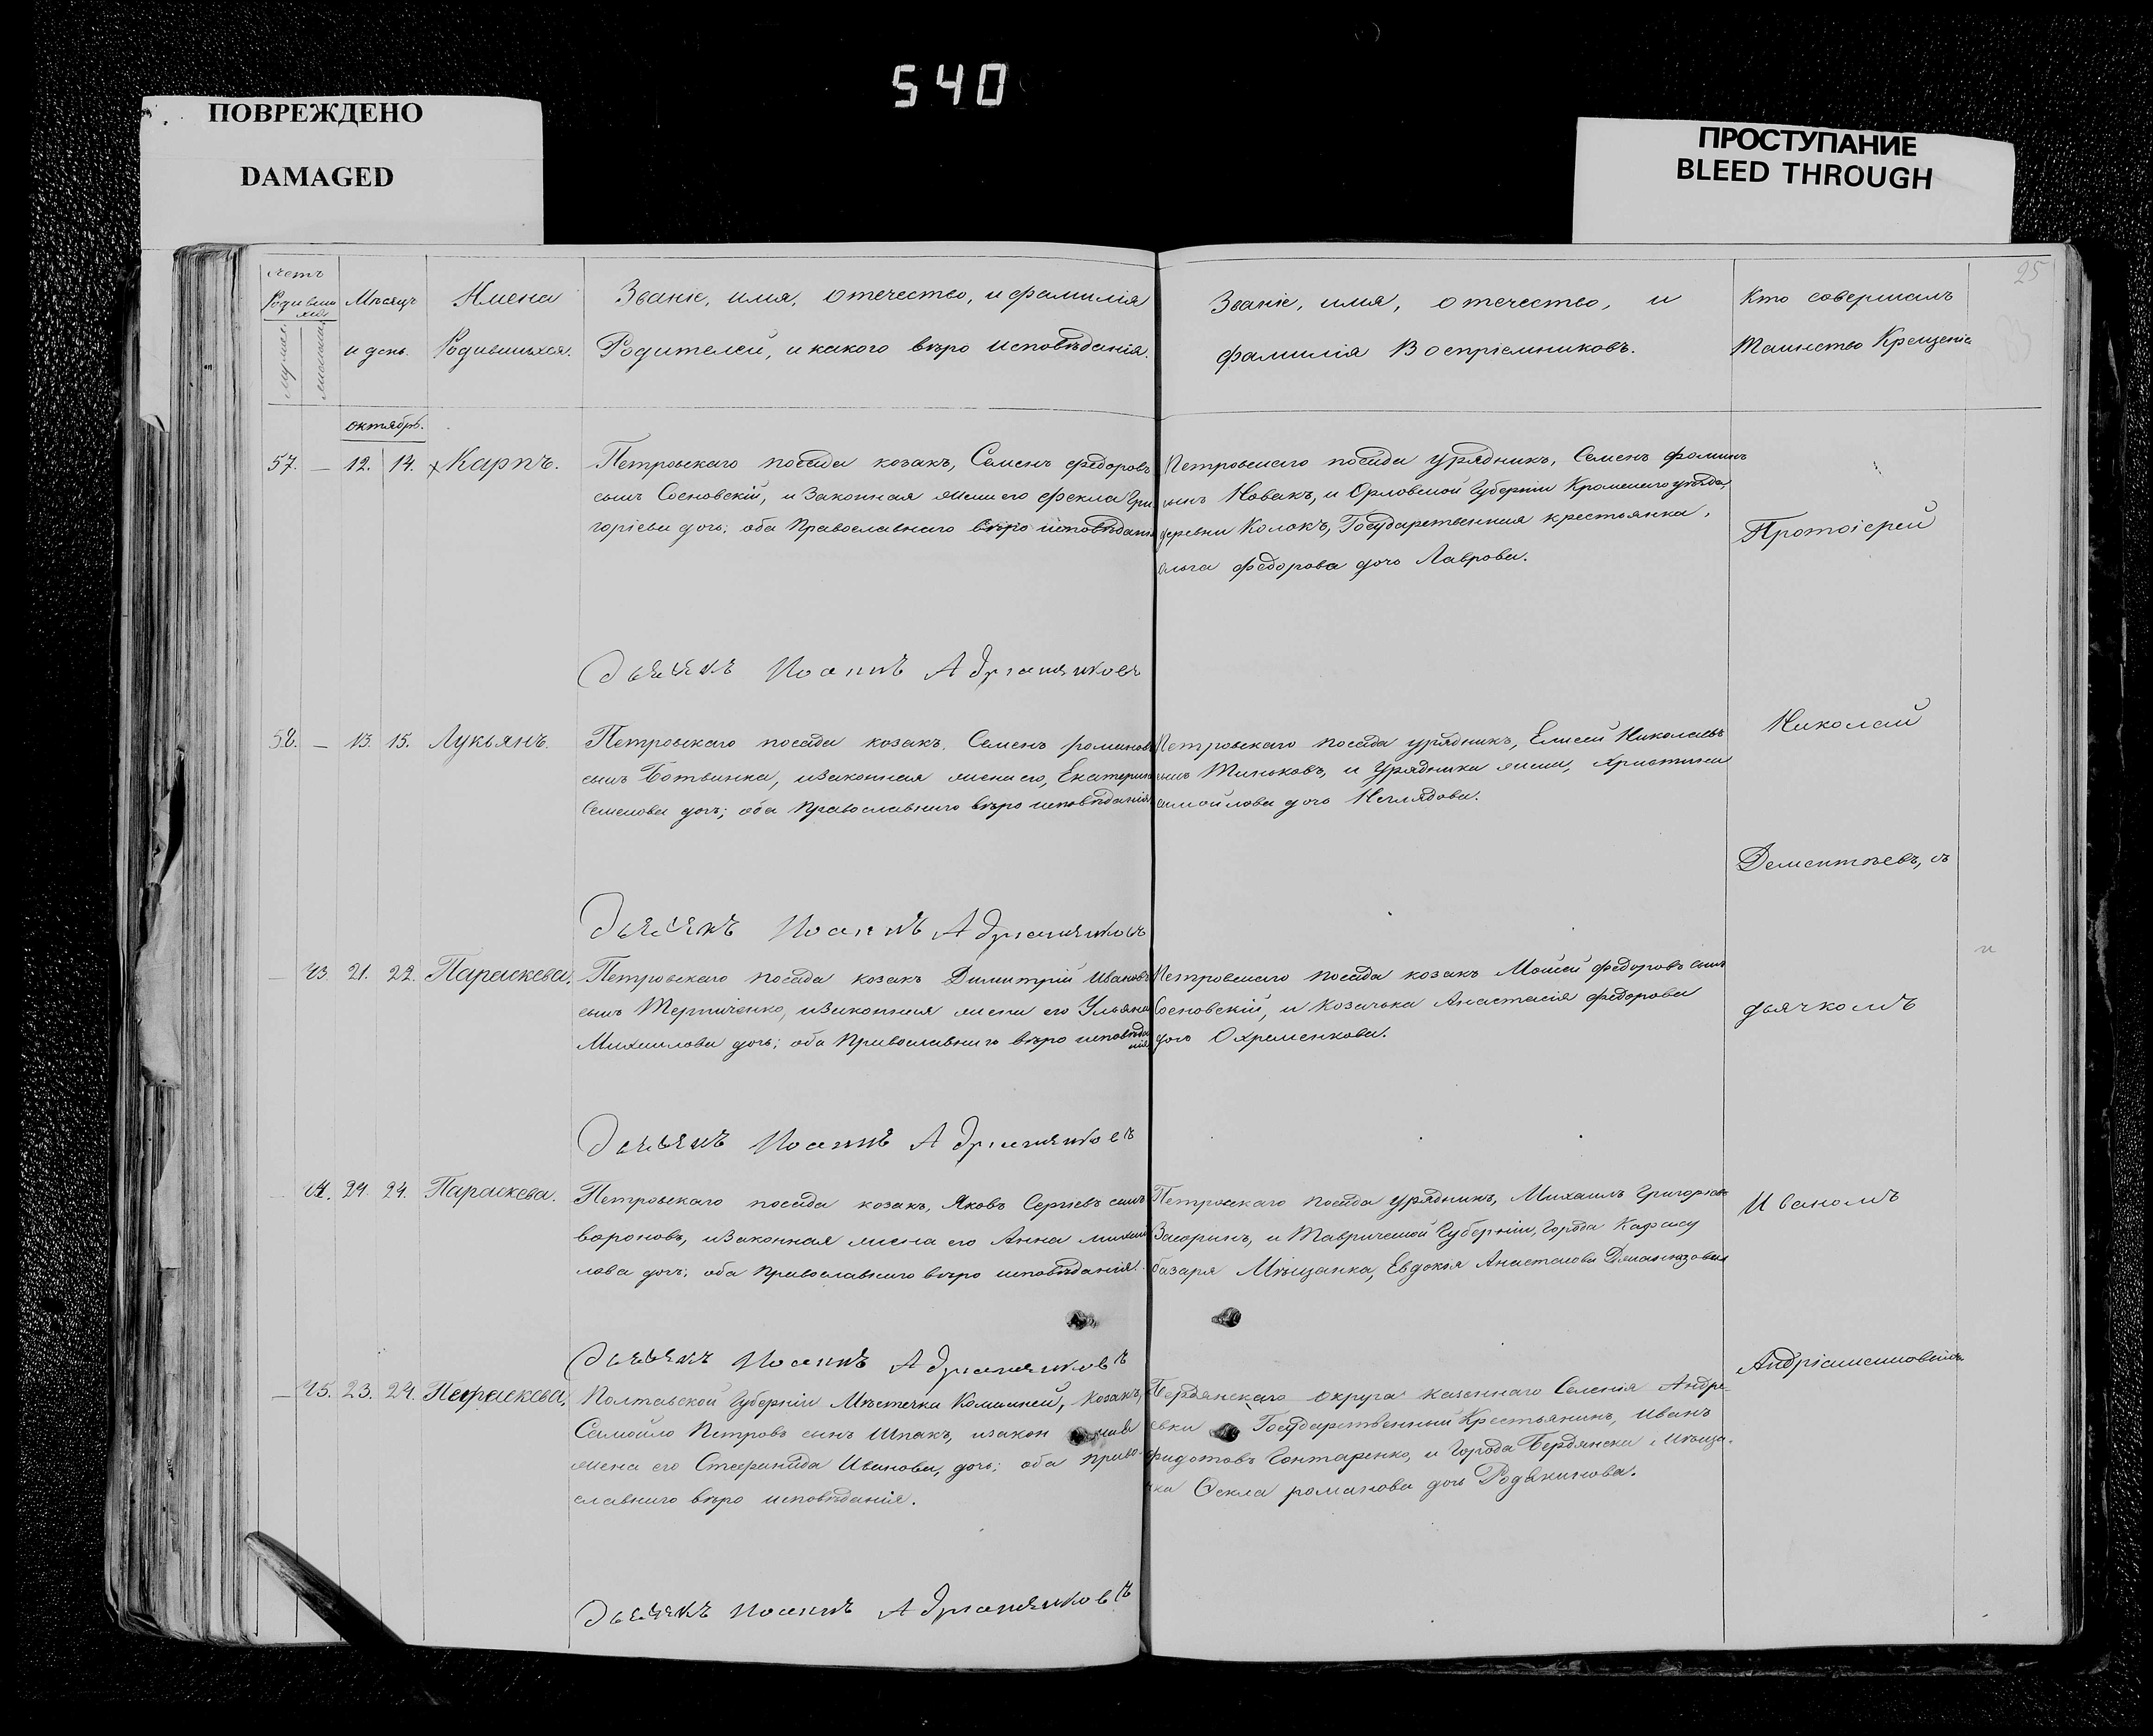 540
ПОВРЕЖДЕНО
DAMAGED
ПРОСТУПАНИЕ
BLEED THROUGH
25
Мѣсяцъ
и день.
Имена
Родившихся.
Званіе, имя, отечество, и фамилія
Родителей, и какого вѣро исповѣданія.
Званіе, имя, отечество, и
фамилія Воспріемниковъ.
Кто совершалъ
Таинство Крещенія
октябрь.
57. — 12. 14. Карпъ.
Петровскаго посада козакъ, Семенъ федоровъ
сынъ Сосновскій, и Законная жена его фекла Гри-
горіева дочь; оба Православнаго вѣро исповѣданія
Петровскаго посада урядникъ, Семенъ фоминъ
сынъ Новакъ, и Орловской Губерніи Кромскаго уѣзда,
деревни Колокъ, Государственная крестьянка,
ольга федорова дочь Лаврова.
Протоіерей
дьячекъ Иоаннъ
58. — 13. 15. Лукьянъ.
Петровскаго посада козакъ, Семенъ романовъ
сынъ Ботвинка, и Законная жена его, Екатерина
Семенова дочь; оба Православнаго вѣро исповѣданія
Петровскаго посада урядникъ, Елисей Николаевъ
сынъ Миньковъ, и Урядника жена, христина
самойлова дочь
Николай
Дементьевъ, съ
дьячекъ Иоаннъ
— 43. 21. 22. Параскева.
Петровскаго посада козакъ Димитрій Ивановъ
сынъ Терниченко, и Законная жена его Ульяна
Михаилова дочь; оба Православнаго вѣро исповѣда
нія
Петровскаго посада козакъ Моисей федоровъ сынъ
Сосновскій, и козачька Анастасія федорова
дочь Охременкова.
дьячкомъ
дьячекъ Иоаннъ
44. 24. 24. Параскева.
Петровскаго посада козакъ, Яковъ Сергіевъ сынъ
вороновъ, и Законная жена его Анна михаи
лова дочь; оба Православнаго вѣро исповѣданія.
Петровскаго посада урядникъ, Михаилъ Григорьевъ
и Таврической Губерніи, города
базаря Мѣщанка, Евдокія Анастасова
Иваномъ
дьячекъ Иоаннъ
— 45. 23. 24. Параскева.
Полтавской Губерніи Мѣстечка Комышней, Козакъ,
Самойло Петровъ сынъ Шпакъ, и закон ная
жена его Стефанида Иванова, дочь; оба право-
славнаго вѣро исповѣданія.
Бердянскаго округа казеннаго Селенія Андре-
евки Государственный Крестьянинъ, Иванъ
Гонтаренко, и Города Бердянска Мѣща-
нка Фекла романова дочь Родакинова.
дьячекъ Иоаннъ